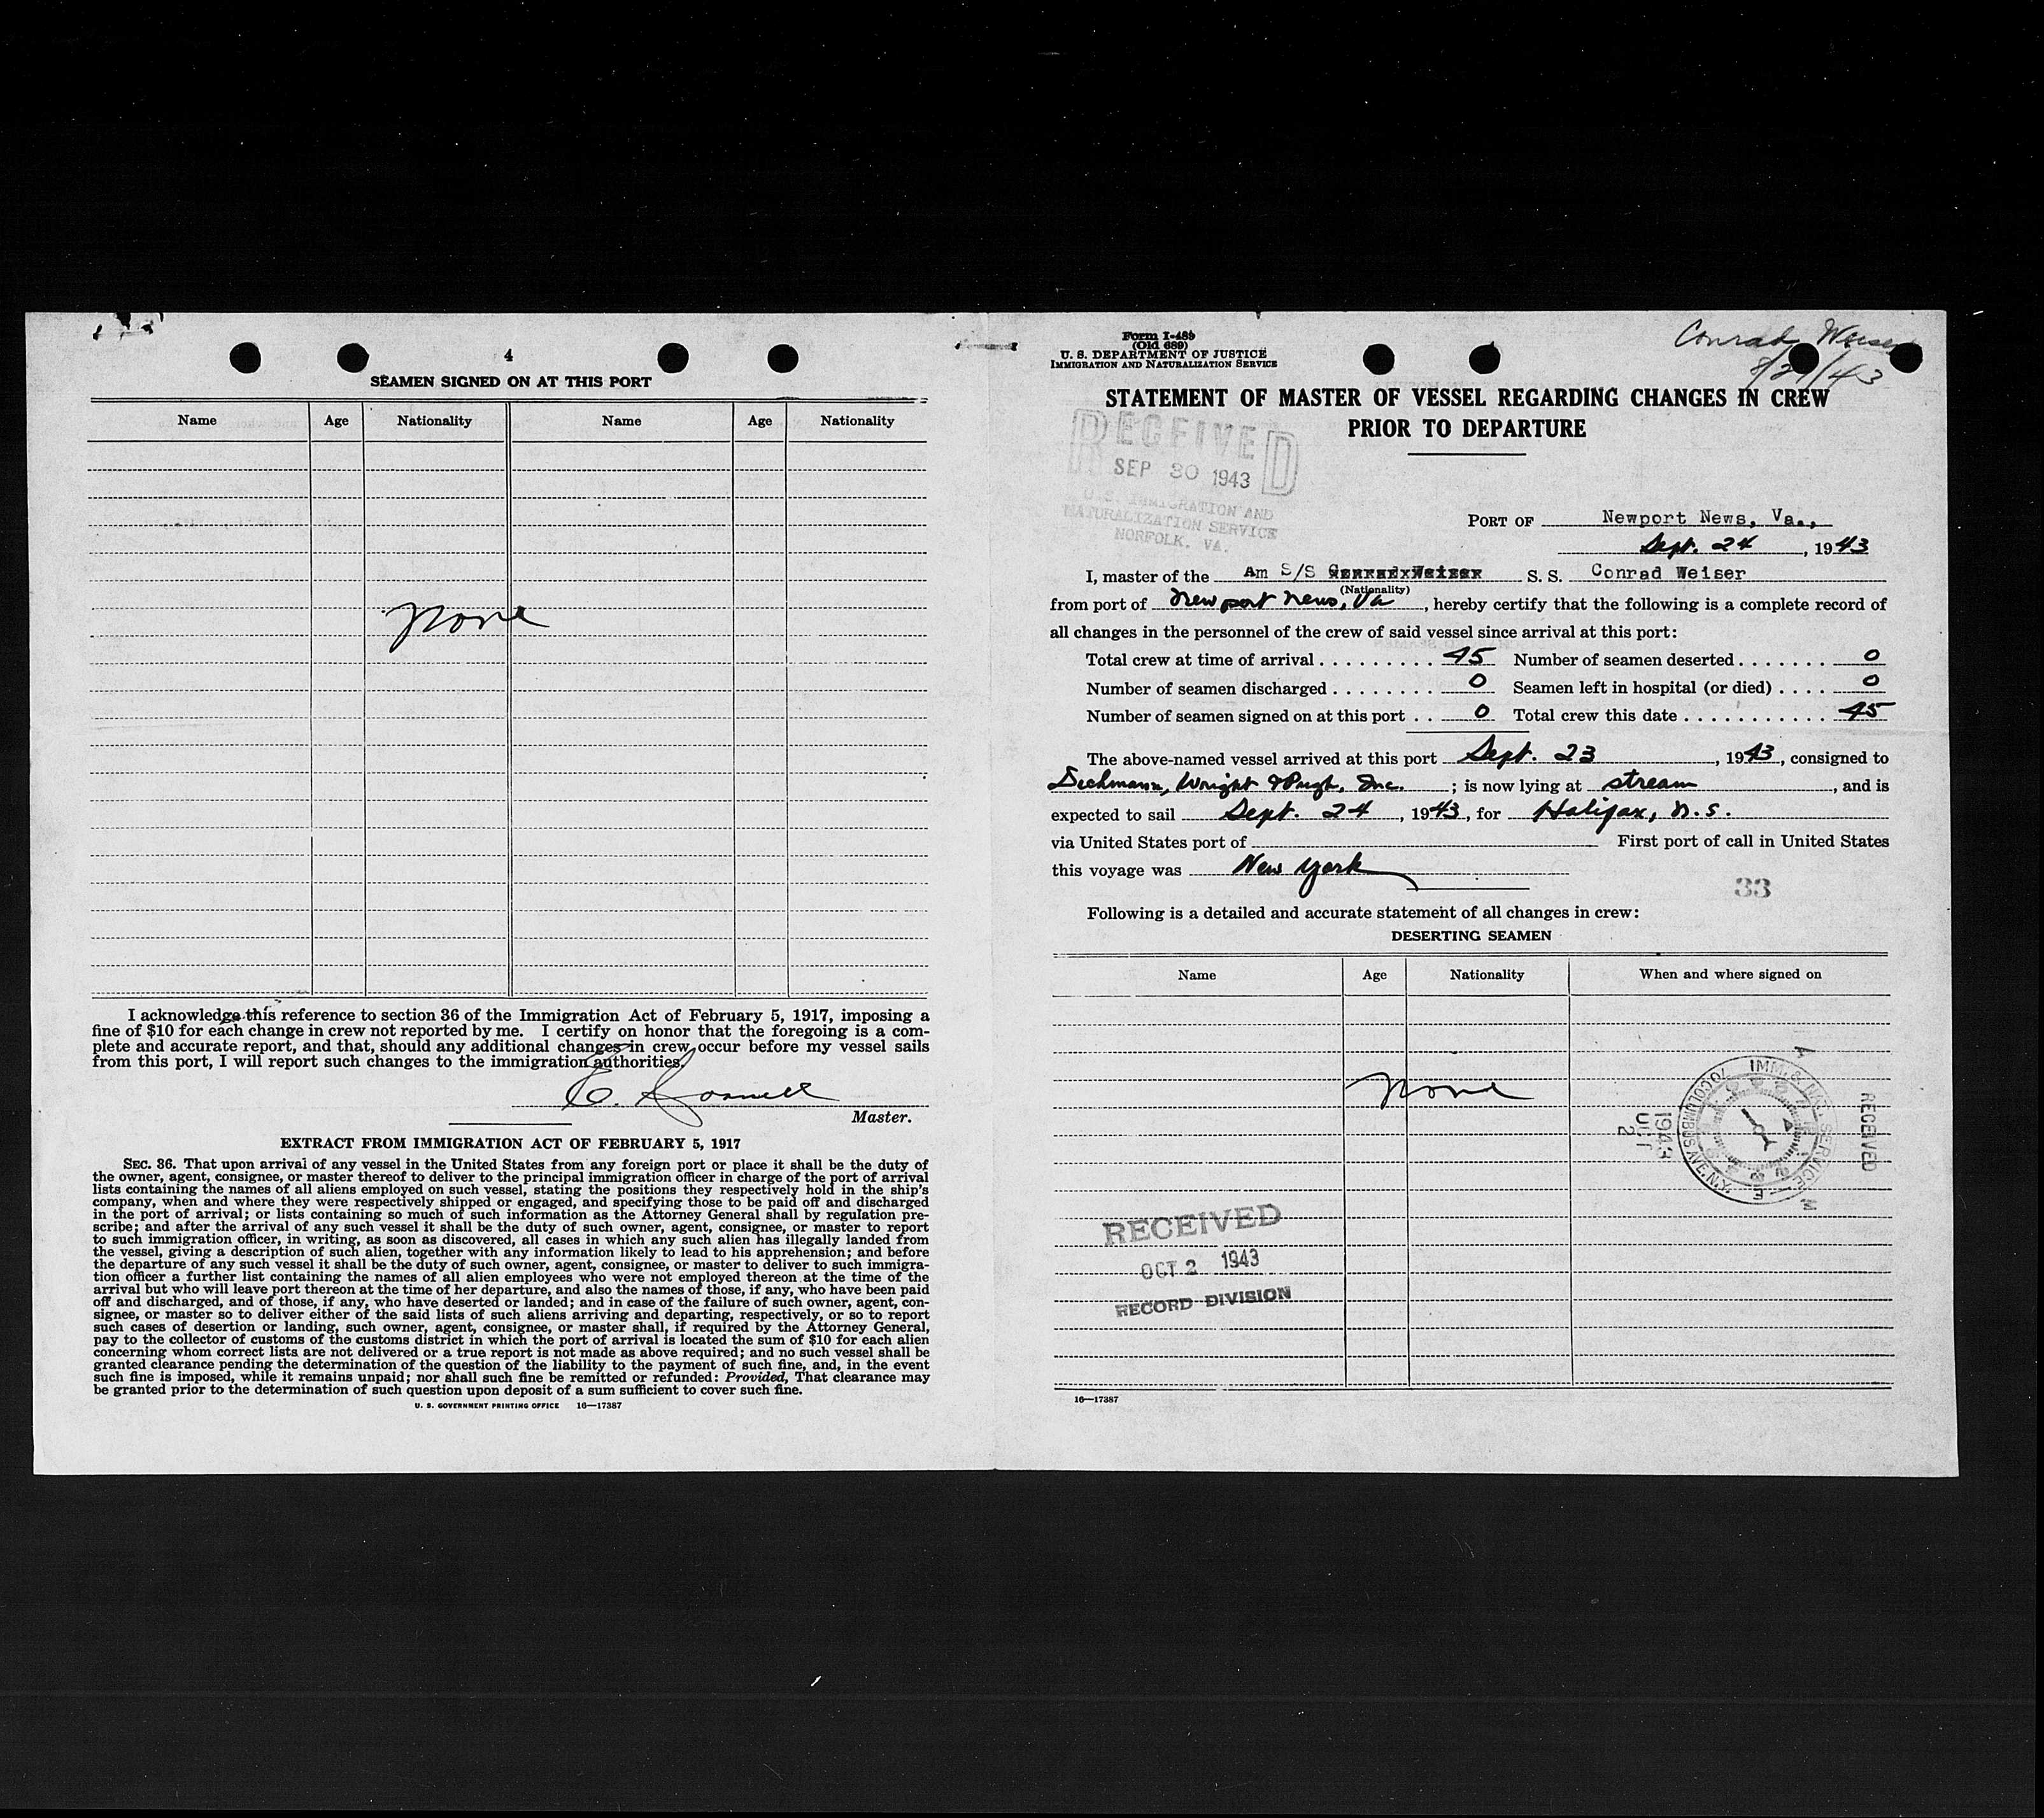 4
SEAMEN SIGNED ON AT THIS PORT
Name Age Nationality Name Age Nationality
None
I acknowledge this reference to section 36 of the Immigration Act of February 5, 1917, imposing a
fine of $10 for each change in crew not reported by me. I certify on honor that the foregoing is a com-
plete and accurate report, and that, should any additional changes in crew occur before my vessel sails
from this port, I will report such changes to the immigration authorities.
C.
Master.
EXTRACT FROM IMMIGRATION ACT OF FEBRUARY 5, 1917
SEC. 36. That upon arrival of any vessel in the United States from any foreign port or place it shall be the duty of
the owner, agent, consignee, or master thereof to deliver to the principal immigration officer in charge of the port of arrival
lists containing the names of all aliens employed on such vessel, stating the positions they respectively hold in the ship's
company, when and where they were respectively shipped or engaged, and specifying those to be paid off and discharged
in the port of arrival; or lists containing so much of such information as the Attorney General shall by regulation pre-
scribe; and after the arrival of any such vessel it shall be the duty of such owner, agent, consignee, or master to report
to such immigration officer, in writing, as soon as discovered, all cases in which any such alien has illegally landed from
the vessel, giving a description of such alien, together with any information likely to lead to his apprehension; and before
the departure of any such vessel it shall be the duty of such owner, agent, consignee, or master to deliver to such immigra-
tion officer a further list containing the names of all alien employees who were not employed thereon at the time of the
arrival but who will leave port thereon at the time of her departure, and also the names of those, if any, who have been paid
off and discharged, and of those, if any, who have deserted or landed; and in case of the failure of such owner, agent, con-
signee, or master so to deliver either of the said lists of such aliens arriving and departing, respectively, or so to report
such cases of desertion or landing, such owner, agent, consignee, or master shall, if required by the Attorney General,
pay to the collector of customs of the customs district in which the port of arrival is located the sum of $10 for each alien
concerning whom correct lists are not delivered or a true report is not made as above required; and no such vessel shall be
granted clearance pending the determination of the question of the liability to the payment of such fine, and, in the event
such fine is imposed, while it remains unpaid; nor shall such fine be remitted or refunded: Provided, That clearance may
be granted prior to the determination of such question upon deposit of a sum sufficient to cover such fine.
U. S. GOVERNMENT PRINTING OFFICE 16—17387
Form I-489
(Old 689)
U. S. DEPARTMENT OF JUSTICE
IMMIGRATION AND NATURALIZATION SERVICE
Conrad Weiser
/43
STATEMENT OF MASTER OF VESSEL REGARDING CHANGES IN CREW
PRIOR TO DEPARTURE
RECEIVED
SEP 30 1943
U. S. IMMIGRATION AND
NATURALIZATION SERVICE
NORFOLK, VA.
PORT OF Newport News, Va.,
Sept. 24, 1943
I, master of the Am S/S Conrad Weiser S. S. Conrad Weiser
(Nationality)
from port of Newport News, Va, hereby certify that the following is a complete record of
all changes in the personnel of the crew of said vessel since arrival at this port:
Total crew at time of arrival . . . . . . . . . 45 Number of seamen deserted . . . . . . . 0
Number of seamen discharged . . . . . . . . 0 Seamen left in hospital (or died) . . . . 0
Number of seamen signed on at this port . . 0 Total crew this date . . . . . . . . . . . 45
The above-named vessel arrived at this port Sept. 23, 1943, consigned to
Dichmann, Wright & Pugh, Inc. ; is now lying at stream, and is
expected to sail Sept. 24, 1943, for Halifax, N.S.
via United States port of First port of call in United States
this voyage was New York
33
Following is a detailed and accurate statement of all changes in crew:
DESERTING SEAMEN
Name Age Nationality When and where signed on
None
RECEIVED
IMM. & NAT. SERVICE
70 COLUMBUS AVE. N.Y.
1943
OCT
2
RECEIVED
OCT 2 1943
RECORD DIVISION
16—17387